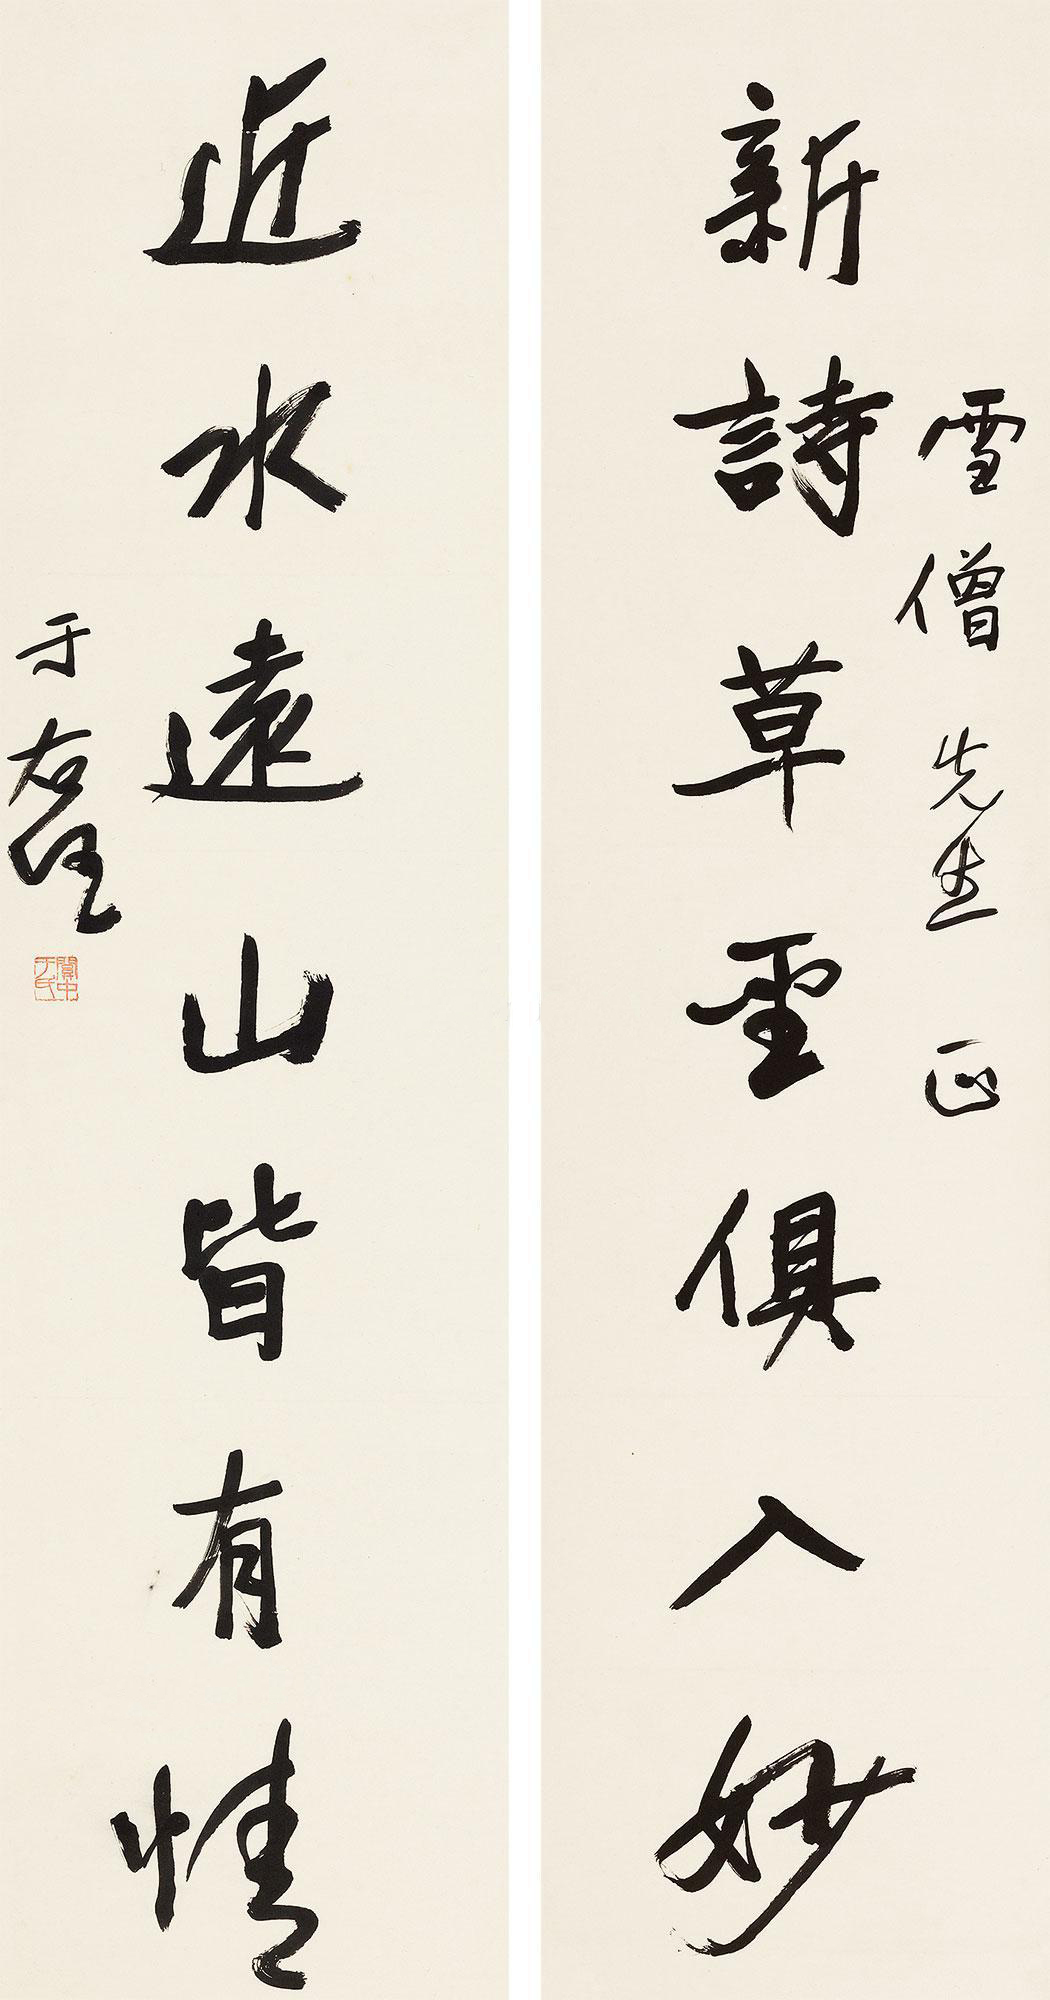 雪僧先生正
新詩草聖俱入妙
近水遠山皆有情
于右任
關中于氏